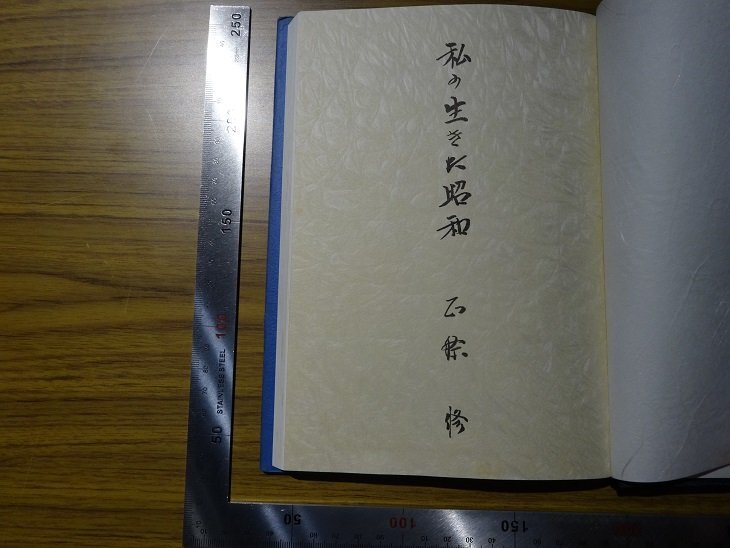 私の生きた昭和
正 修
250
200
150
100
STAINLESS STEEL
50
50
100
150